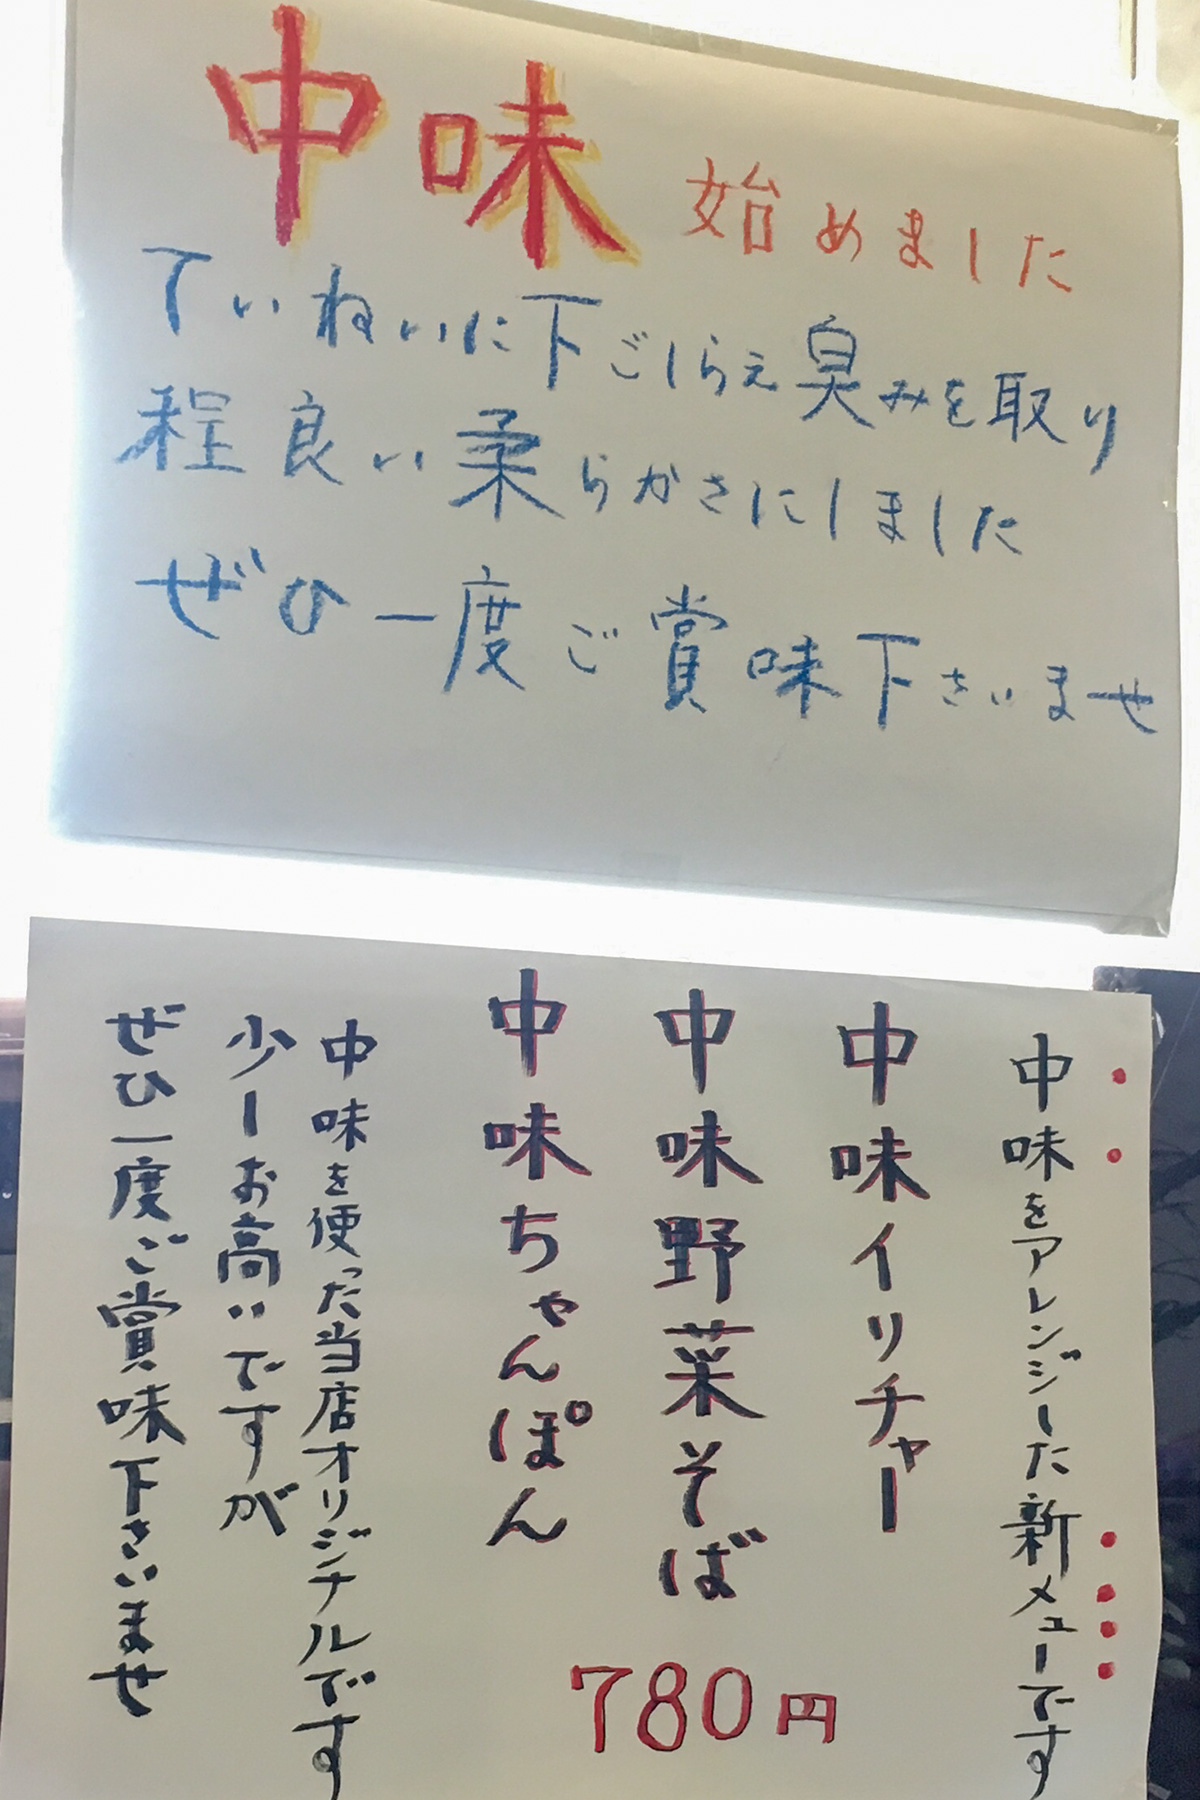 中味 始めました
ていねいに下ごしらえ臭みを取り
程良い柔らかさにしました
ぜひ一度ご賞味下さいませ
中味をアレンジした新メューです
中味イリチャー
中味野菜そば
中味ちゃんぽん
780円
中味を使った当店オリジナルです
少しお高いですが
ぜひ一度ご賞味下さいませ